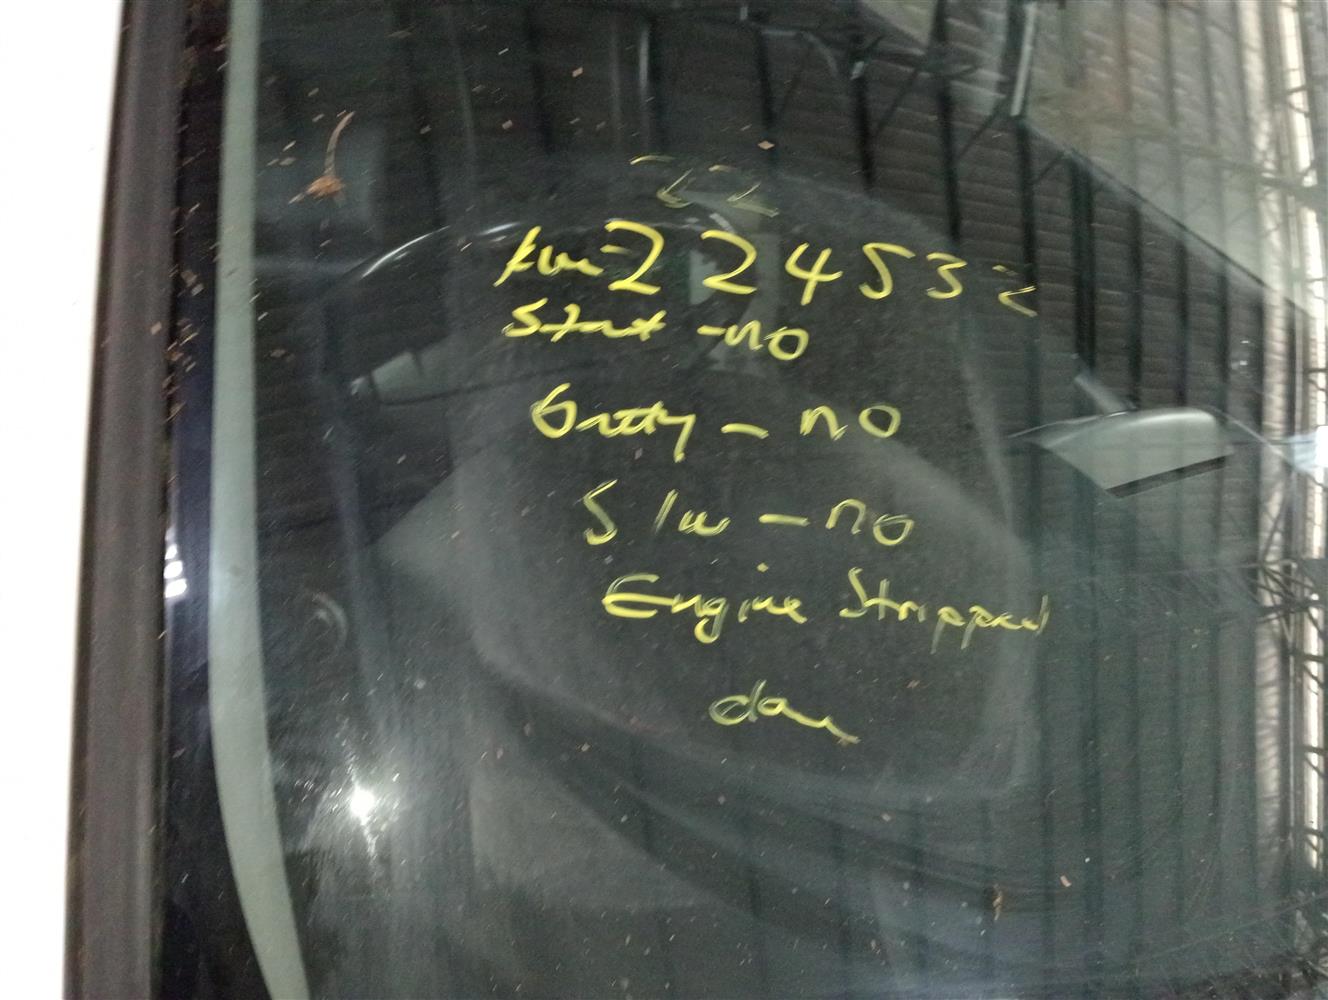 km 224532
Start - no
- no
S/w - no
Engine Stripped